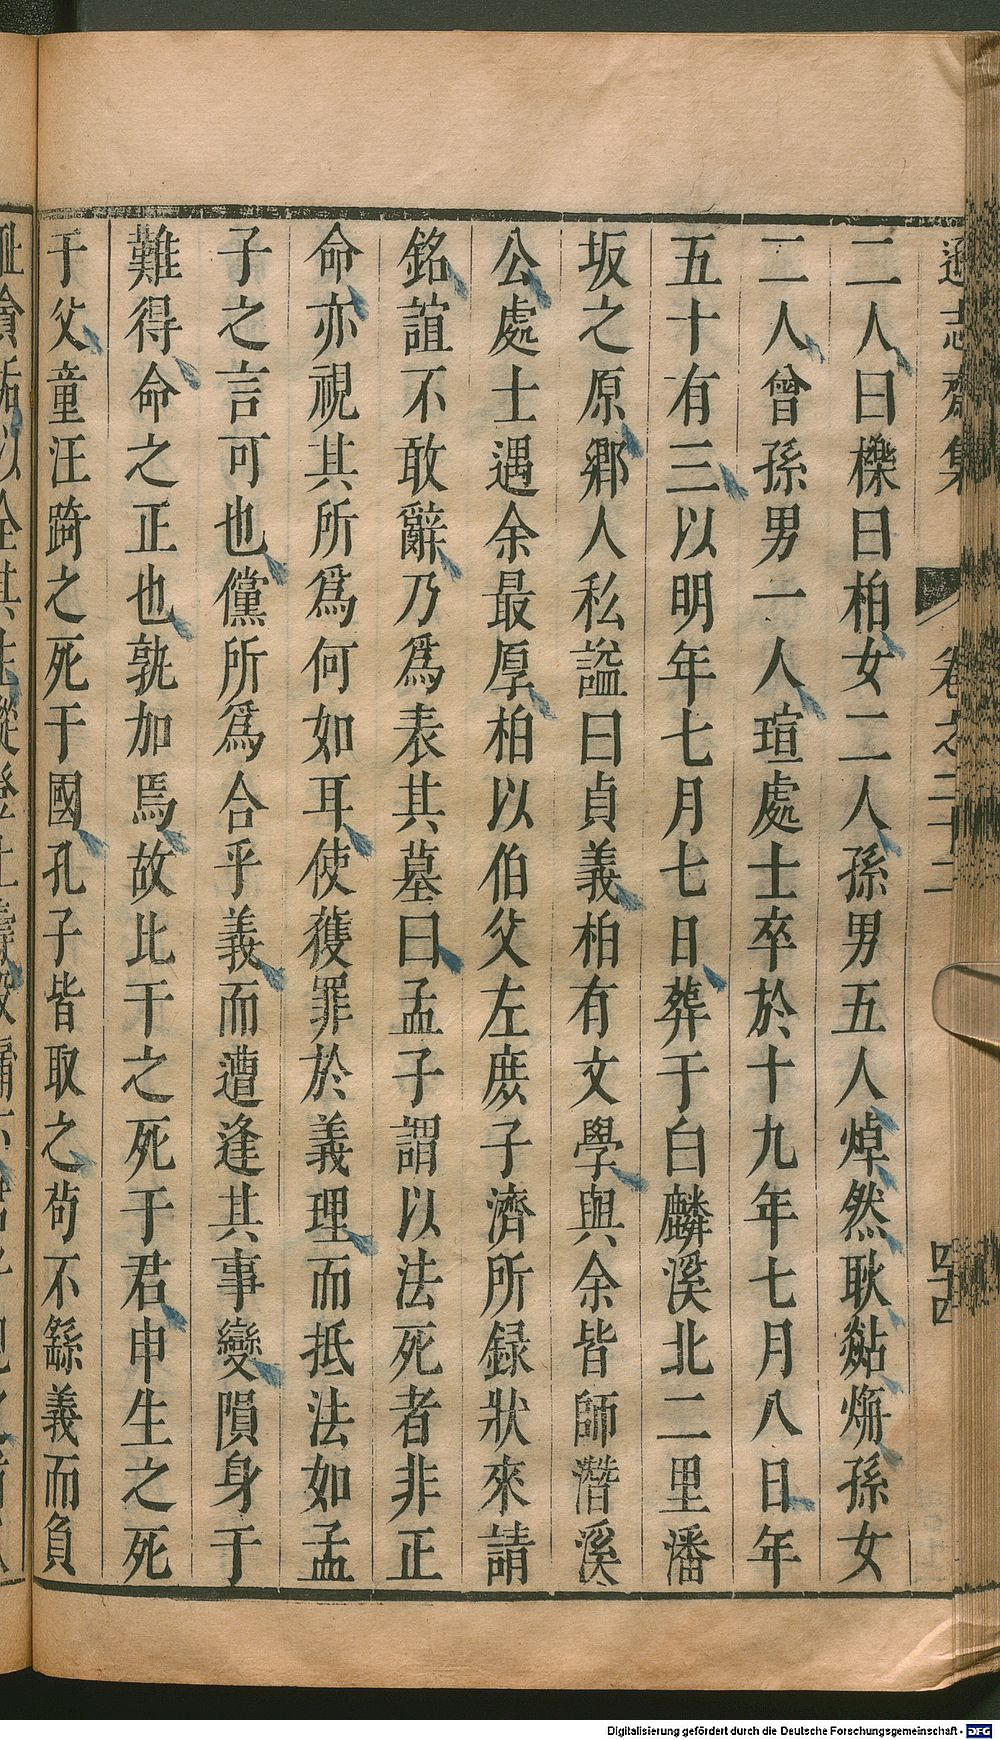 遜志齋集 卷之二十二 四十四
二人曰櫟曰柏女二人孫男五人焯然耿㸃孫女
二人曾孫男一人瑄處士卒於十九年七月八日年
五十有三以明年七月七日葬于白麟溪北二里潘
坂之原鄉人私謚曰貞義柏有文學與余皆師潛溪
公處士遇余最厚柏以伯父左庶子濟所録狀來請
銘誼不敢辭乃爲表其墓曰孟子謂以法死者非正
命亦視其所爲何如耳使獲罪於義理而抵法如孟
子之言可也儻所爲合乎義而遭逢其事變隕身于
難得命之正也孰加焉故比干之死于君申生之死
于父童汪踦之死于國孔子皆取之苟不繇義而負